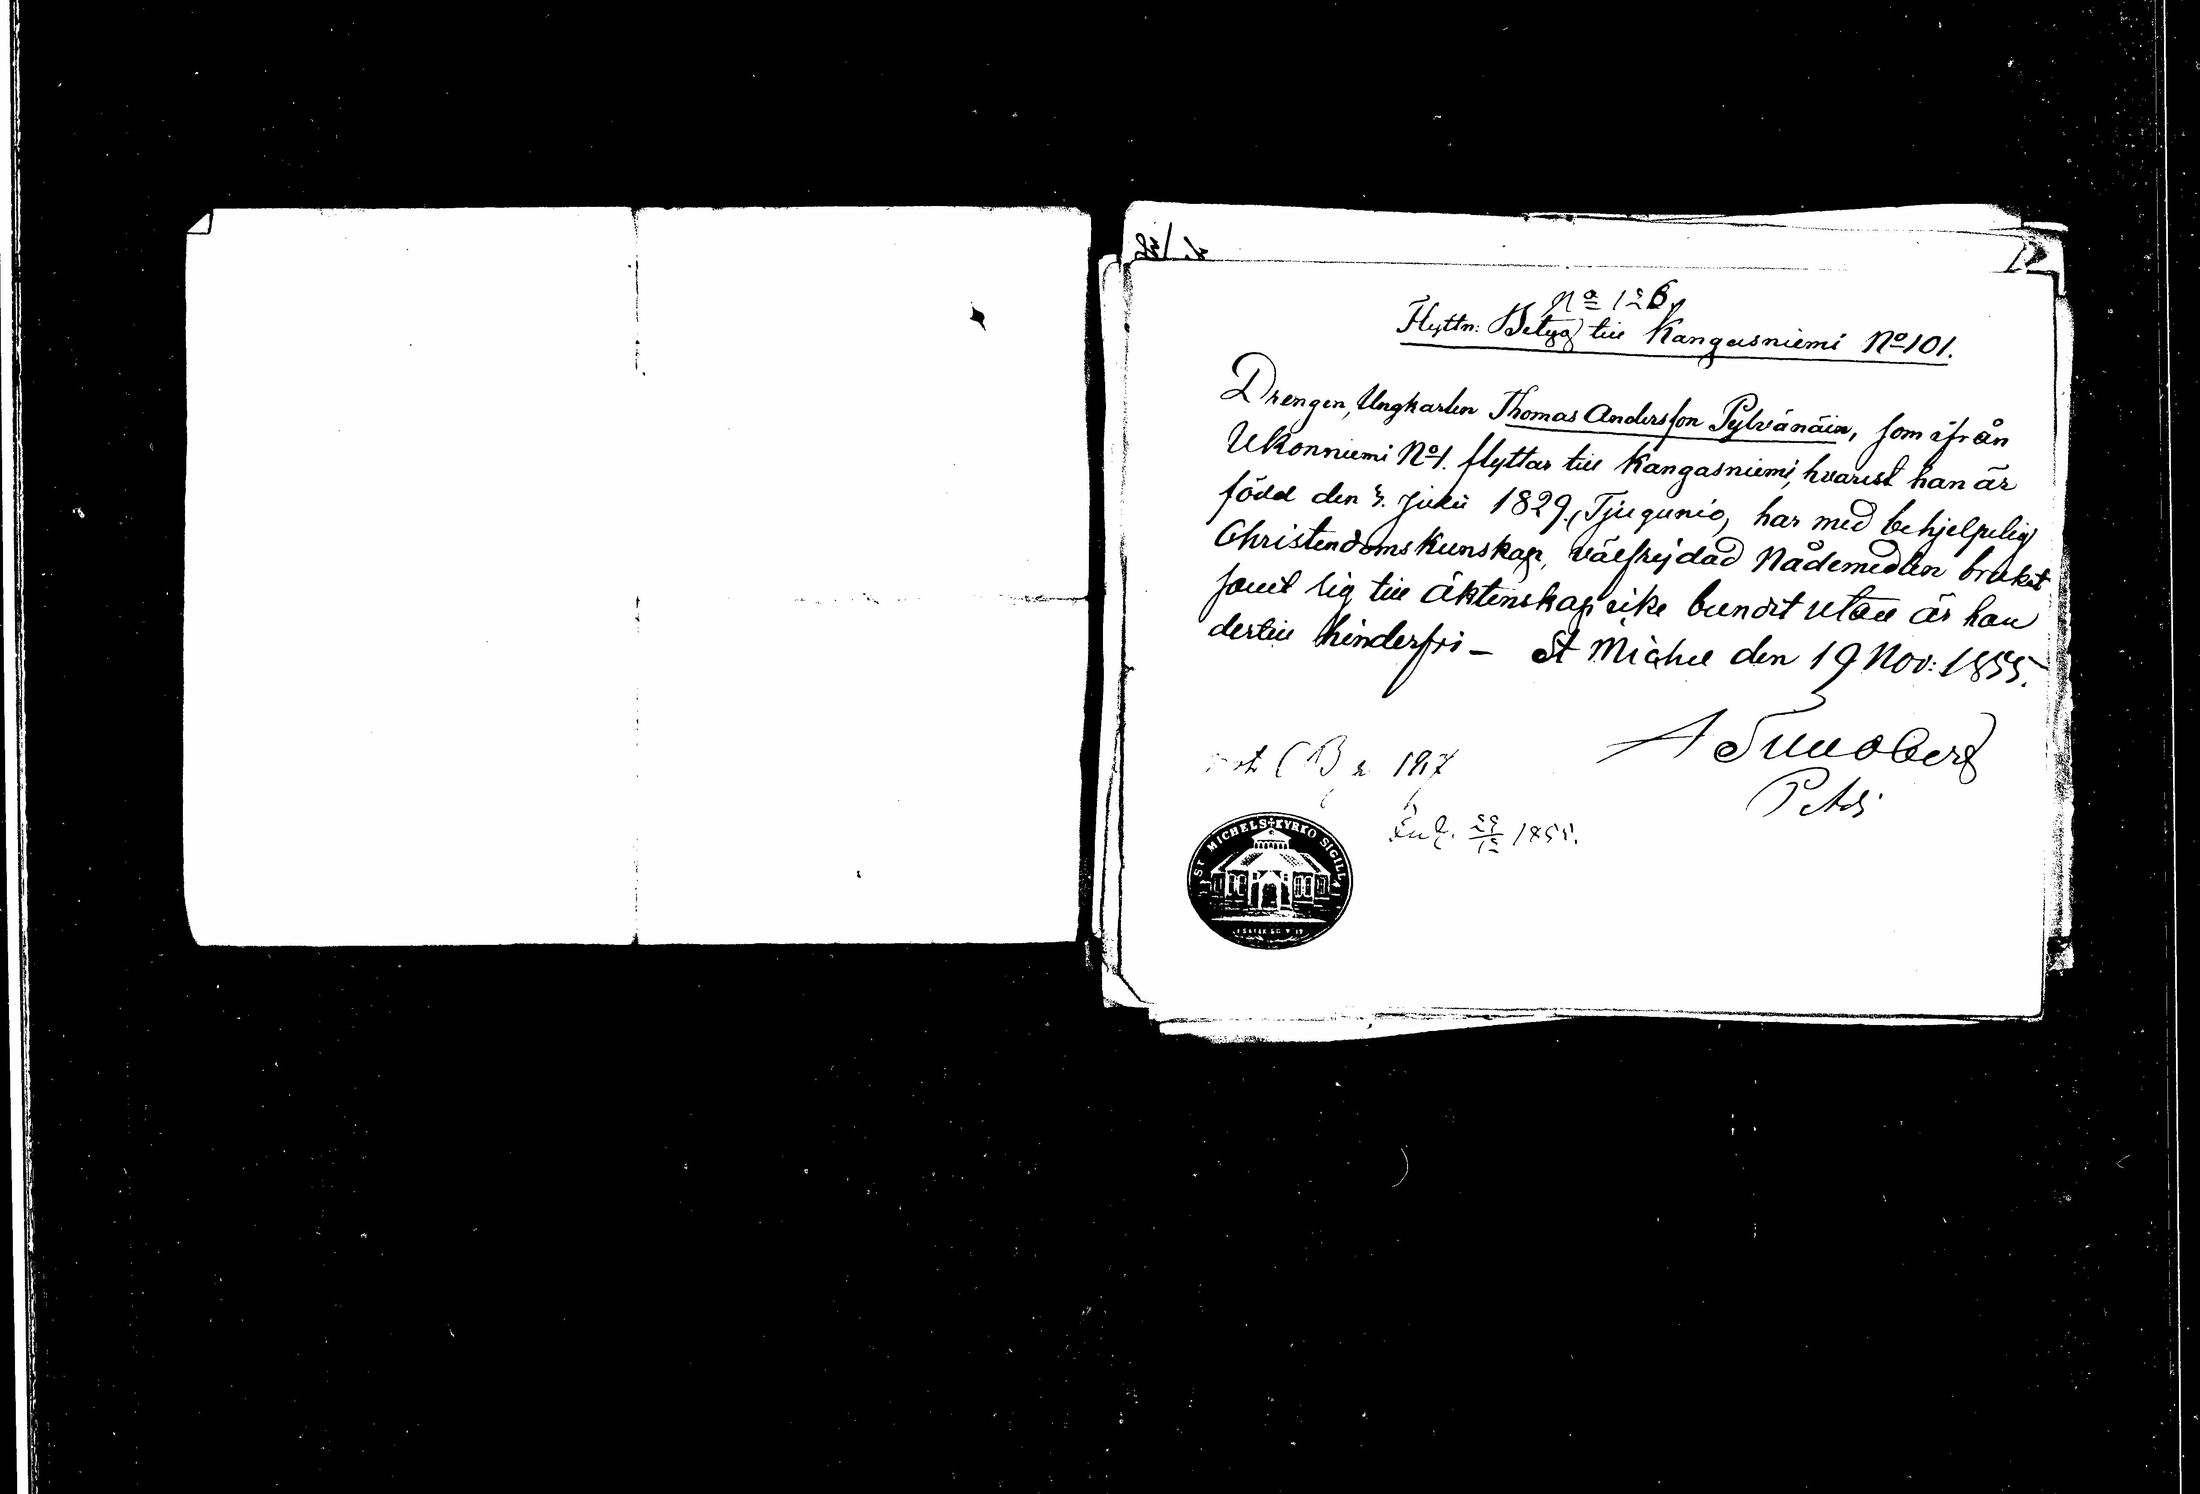 Nº 126
Flyttn: Betyg till Kangasniemi Nº 101.
Drengen, Ungkarlen Thomas Andersson Pylvänäin, som ifrån
Ukonniemi Nº 1. flyttar till Kangasniemi, hvarest han är
född den 3. Julii 1829, Tjugunio, har med behjelpelig
Christendomskunskap, välfrejdad Nådemedlen brukat
samt sig till äktenskap icke bundit utan är han
dertill hinderfri — St Michel den 19 Nov: 1855.
A Sundberg
P. Adj
197
1855.
ST MICHELS KYRKO SIGILL